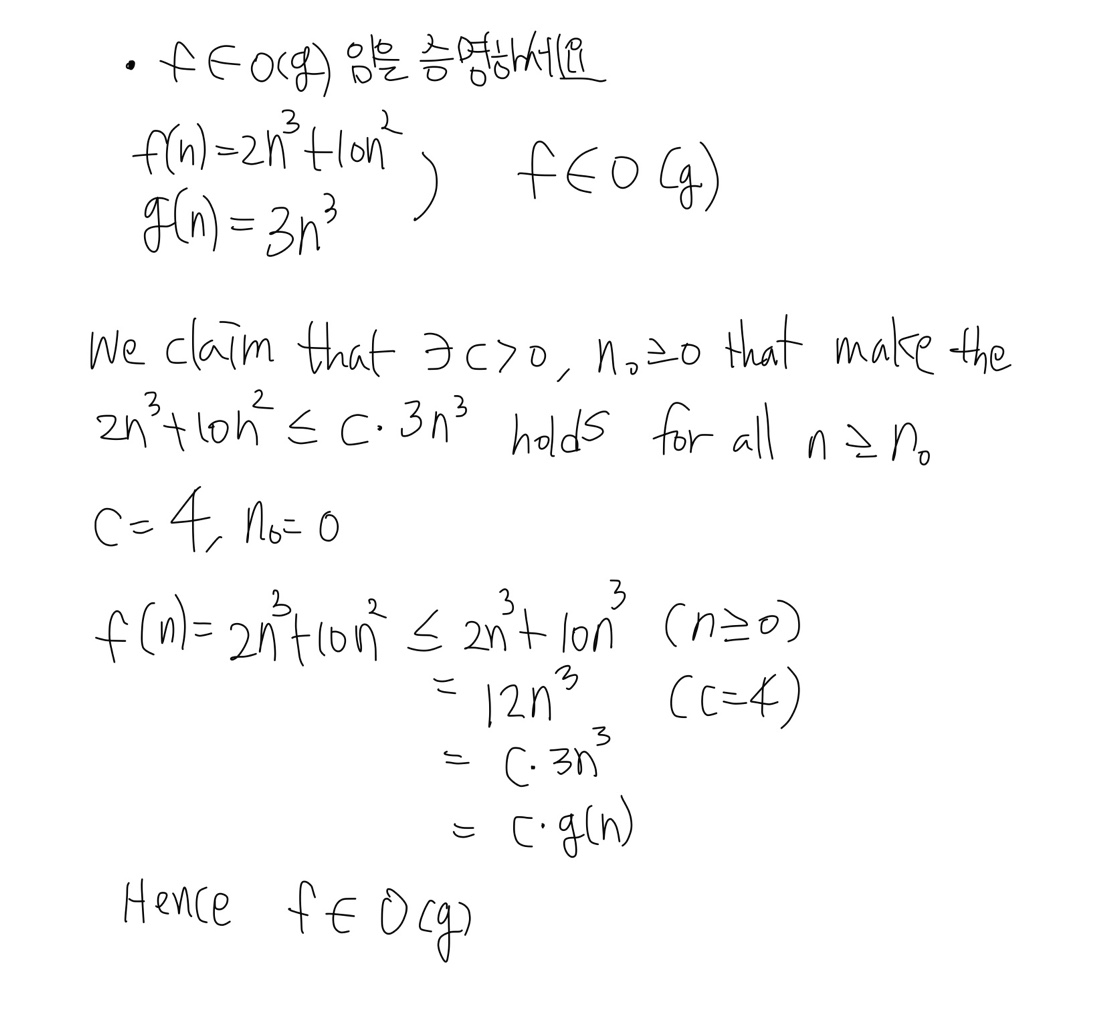 • f∈O(g) 임을 증명하세요
f(n)=2n³+10n²
g(n)=3n³ ) f∈O(g)
We claim that ∃c>0, n₀≥0 that make the
2n³+10n² ≤ c·3n³ holds for all n≥n₀
c=4, n₀=0
f(n)=2n³+10n² ≤ 2n³+10n³ (n≥0)
= 12n³ (c=4)
= c·3n³
= c·g(n)
Hence f∈O(g)